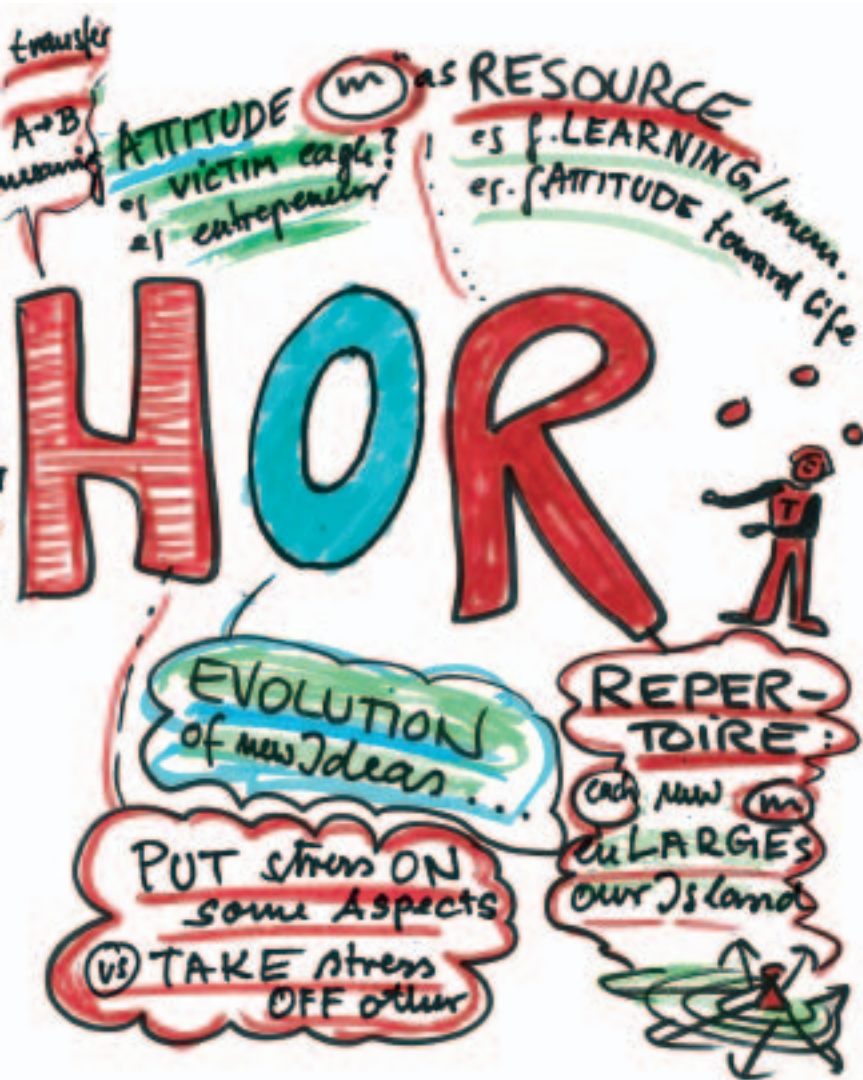 transfer
A→B
meaning
ATTITUDE
es VICTIM eagle?
es entrepeneur
m" as RESOURCE
es f. LEARNING/mem.
es. f. ATTITUDE toward life
HOR
S
T
EVOLUTION
of new Ideas....
REPER-
TOIRE:
each new m
enLARGEs
our Island
PUT stress ON
some Aspects
vs TAKE stress
OFF other